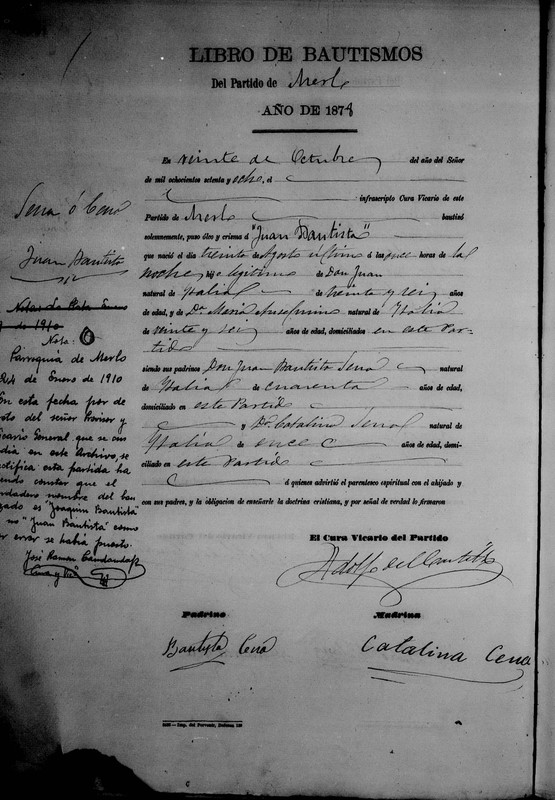 LIBRO DE BAUTISMOS
Del Partido de Merlo
AÑO DE 1878
En veinte de Octubre del año del Señor
de mil ochocientos setenta y ocho, el
infrascripto Cura Vicario de este
Partido de Merlo bautizó
solemnemente, puso óleo y crisma á "Juan Bautista"
que nació el dia treinta de Agosto último á las once horas de la
noche, hijo legítimo de Don Juan
natural de Italia de treinta y seis años
de edad, y de Da. Maria natural de Italia
de veinte y seis años de edad, domiciliados en este Par-
tido
siendo sus padrinos Don Juan Bautista Sena natural
de Italia de cuarenta años de edad,
domiciliado en este Partido
y Da. Catalina Sena natural de
Italia de once años de edad, domi-
ciliado en este Partido
á quienes advirtió el parentesco espiritual con el ahijado y
con sus padres, y la obligacion de enseñarle la doctrina cristiana, y por señal de verdad lo firmaron
El Cura Vicario del Partido
Adolfo del Castillo
Padrino
Madrina
Bautista Cena
Catalina Cena
Sena ó Cena
Juan Bautista
Nota:
Parroquia de Merlo
de Enero de 1910
En esta fecha por de
del señor Provisor y
General que se
dia en este Archivo, se
rectifica esta partida ha
ndo constar que el
rdadero nombre del bau
zado es "Joaquin Bautista"
no "Juan Bautista" como
r error se habia puesto.
José Ramon